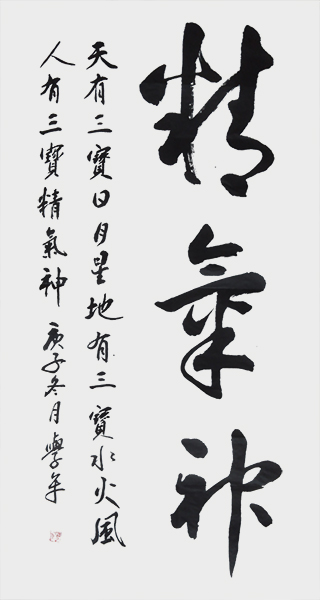 精氣神
天有三寶日月星地有三寶水火風
人有三寶精氣神庚子冬月學年